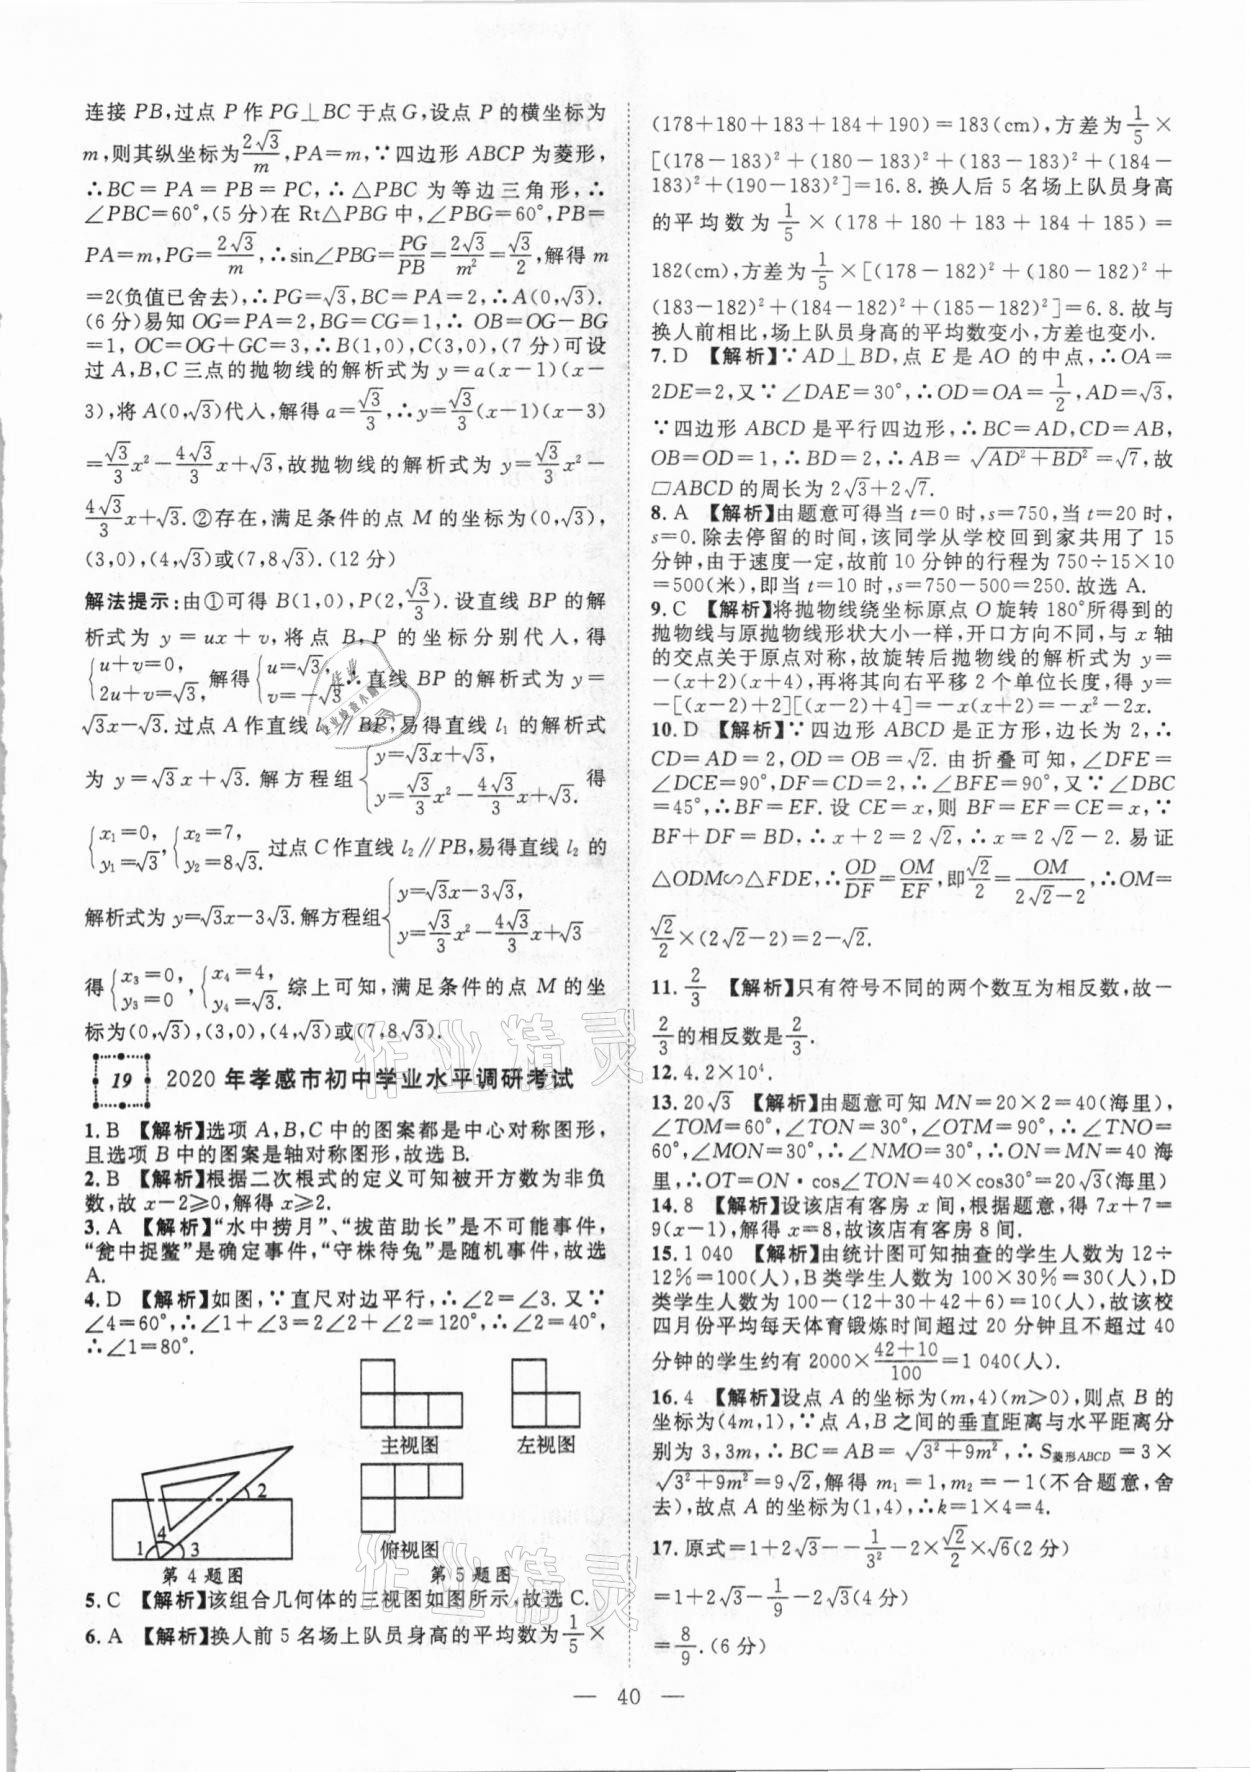 连接 PB,过点 P 作 PG⊥BC 于点 G,设点 P 的横坐标为
m,则其纵坐标为2√3/m,PA=m,∵四边形 ABCP 为菱形,
∴BC=PA=PB=PC,∴△PBC 为等边三角形,∴
∠PBC=60°,(5 分)在 Rt△PBG 中,∠PBG=60°,PB=
PA=m,PG=2√3/m,∴sin∠PBG=PG/PB=2√3/m²=√3/2,解得 m
=2(负值已舍去),∴PG=√3,BC=PA=2,∴A(0,√3).
(6 分)易知 OG=PA=2,BG=CG=1,∴ OB=OG-BG
=1,OC=OG+GC=3,∴B(1,0),C(3,0),(7 分)可设
过 A,B,C 三点的抛物线的解析式为 y=a(x-1)(x-
3),将 A(0,√3)代入,解得 a=√3/3,∴y=√3/3(x-1)(x-3)
=√3/3x²-4√3/3x+√3,故抛物线的解析式为 y=√3/3x²-
4√3/3x+√3.②存在,满足条件的点 M 的坐标为(0,√3),
(3,0),(4,√3)或(7,8√3).(12 分)
解法提示:由①可得 B(1,0),P(2,√3/3).设直线 BP 的解
析式为 y=ux+v,将点 B,P 的坐标分别代入,得
{u+v=0, 2u+v=√3, 解得{u=√3, v=-√3.∴直线 BP 的解析式为 y=
√3x-√3.过点 A 作直线 l₁∥BP,易得直线 l₁ 的解析式
为 y=√3x+√3.解方程组{y=√3x+√3, y=√3/3x²-4√3/3x+√3. 得
{x₁=0, y₁=√3, {x₂=7, y₂=8√3. 过点 C 作直线 l₂∥PB,易得直线 l₂ 的
解析式为 y=√3x-3√3.解方程组{y=√3x-3√3, y=√3/3x²-4√3/3x+√3
得{x₃=0, y₃=0, {x₄=4, y₄=√3. 综上可知,满足条件的点 M 的坐
标为(0,√3),(3,0),(4,√3)或(7,8√3).
19 2020 年孝感市初中学业水平调研考试
1.B 【解析】选项 A,B,C 中的图案都是中心对称图形,
且选项 B 中的图案是轴对称图形,故选 B.
2.B 【解析】根据二次根式的定义可知被开方数为非负
数,故 x-2≥0,解得 x≥2.
3.A 【解析】“水中捞月”、“拔苗助长”是不可能事件,
“瓮中捉鳖”是确定事件,“守株待兔”是随机事件,故选
A.
4.D 【解析】如图,∵直尺对边平行,∴∠2=∠3.又∵
∠4=60°,∴∠1+∠3=2∠2+∠2=120°,∴∠2=40°,
∴∠1=80°.
主视图 左视图
1 4 3 2
俯视图
第 4 题图 第 5 题图
5.C 【解析】该组合几何体的三视图如图所示,故选 C.
6.A 【解析】换人前 5 名场上队员身高的平均数为1/5×
(178+180+183+184+190)=183(cm),方差为1/5×
[(178-183)²+(180-183)²+(183-183)²+(184-
183)²+(190-183)²]=16.8.换人后 5 名场上队员身高
的平均数为1/5×(178+180+183+184+185)=
182(cm),方差为1/5×[(178-182)²+(180-182)²+
(183-182)²+(184-182)²+(185-182)²]=6.8.故与
换人前相比,场上队员身高的平均数变小,方差也变小.
7.D 【解析】∵AD⊥BD,点 E 是 AO 的中点,∴OA=
2DE=2,又∵∠DAE=30°,∴OD=OA=1/2,AD=√3,
∵四边形 ABCD 是平行四边形,∴BC=AD,CD=AB,
OB=OD=1,∴BD=2,∴AB=√AD²+BD²=√7,故
□ABCD 的周长为 2√3+2√7.
8.A 【解析】由题意可得当 t=0 时,s=750,当 t=20 时,
s=0.除去停留的时间,该同学从学校回到家共用了 15
分钟,由于速度一定,故前 10 分钟的行程为 750÷15×10
=500(米),即当 t=10 时,s=750-500=250.故选 A.
9.C 【解析】将抛物线绕坐标原点 O 旋转 180°所得到的
抛物线与原抛物线形状大小一样,开口方向不同,与 x 轴
的交点关于原点对称,故旋转后抛物线的解析式为 y=
-(x+2)(x+4),再将其向右平移 2 个单位长度,得 y=
-[(x-2)+2][(x-2)+4]=-x(x+2)=-x²-2x.
10.D 【解析】∵四边形 ABCD 是正方形,边长为 2,∴
CD=AD=2,OD=OB=√2.由折叠可知,∠DFE=
∠DCE=90°,DF=CD=2,∴∠BFE=90°,又∵∠DBC
=45°,∴BF=EF.设 CE=x,则 BF=EF=CE=x,∵
BF+DF=BD,∴x+2=2√2,∴x=2√2-2.易证
△ODM∽△FDE,∴OD/DF=OM/EF,即√2/2=OM/(2√2-2),∴OM=
√2/2×(2√2-2)=2-√2.
11.2/3 【解析】只有符号不同的两个数互为相反数,故-
2/3的相反数是2/3.
12.4.2×10⁴.
13.20√3 【解析】由题意可知 MN=20×2=40(海里),
∠TOM=60°,∠TON=30°,∠OTM=90°,∴∠TNO=
60°,∠MON=30°,∴∠NMO=30°,∴ON=MN=40 海
里,∴OT=ON·cos∠TON=40×cos30°=20√3(海里)
14.8 【解析】设该店有客房 x 间,根据题意,得 7x+7=
9(x-1),解得 x=8,故该店有客房 8 间.
15.1 040 【解析】由统计图可知抽查的学生人数为 12÷
12%=100(人),B 类学生人数为 100×30%=30(人),D
类学生人数为 100-(12+30+42+6)=10(人),故该校
四月份平均每天体育锻炼时间超过 20 分钟且不超过 40
分钟的学生约有 2000×(42+10)/100=1 040(人).
16.4 【解析】设点 A 的坐标为(m,4)(m>0),则点 B 的
坐标为(4m,1),∵点 A,B 之间的垂直距离与水平距离分
别为 3,3m,∴BC=AB=√3²+9m²,∴S菱形ABCD=3×
√3²+9m²=9√2,解得 m₁=1,m₂=-1(不合题意,舍
去),故点 A 的坐标为(1,4),∴k=1×4=4.
17.原式=1+2√3-1/-3²-2×√2/2×√6(2 分)
=1+2√3-1/9-2√3(4 分)
=8/9.(6 分)
— 40 —
作业精灵
作业精灵